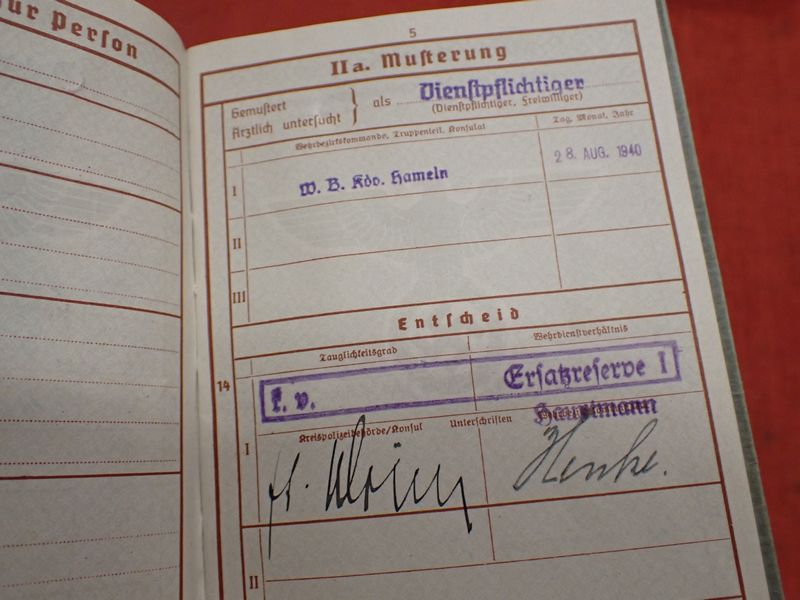 zur Person
5
IIa. Musterung
Gemustert
Ärztlich untersucht } als Dienstpflichtiger
(Dienstpflichtiger, Freiwilliger)
Wehrbezirkskommando, Truppenteil, Konsulat Tag, Monat, Jahr
I W. B. Kdo. Hameln 28. AUG. 1940
II
III
Entscheid
Tauglichkeitsgrad Wehrdienstverhältnis
14
k. v. Ersatzreserve I
Hauptmann
Kreispolizeibehörde/Konsul Unterschriften
I Henke.
II